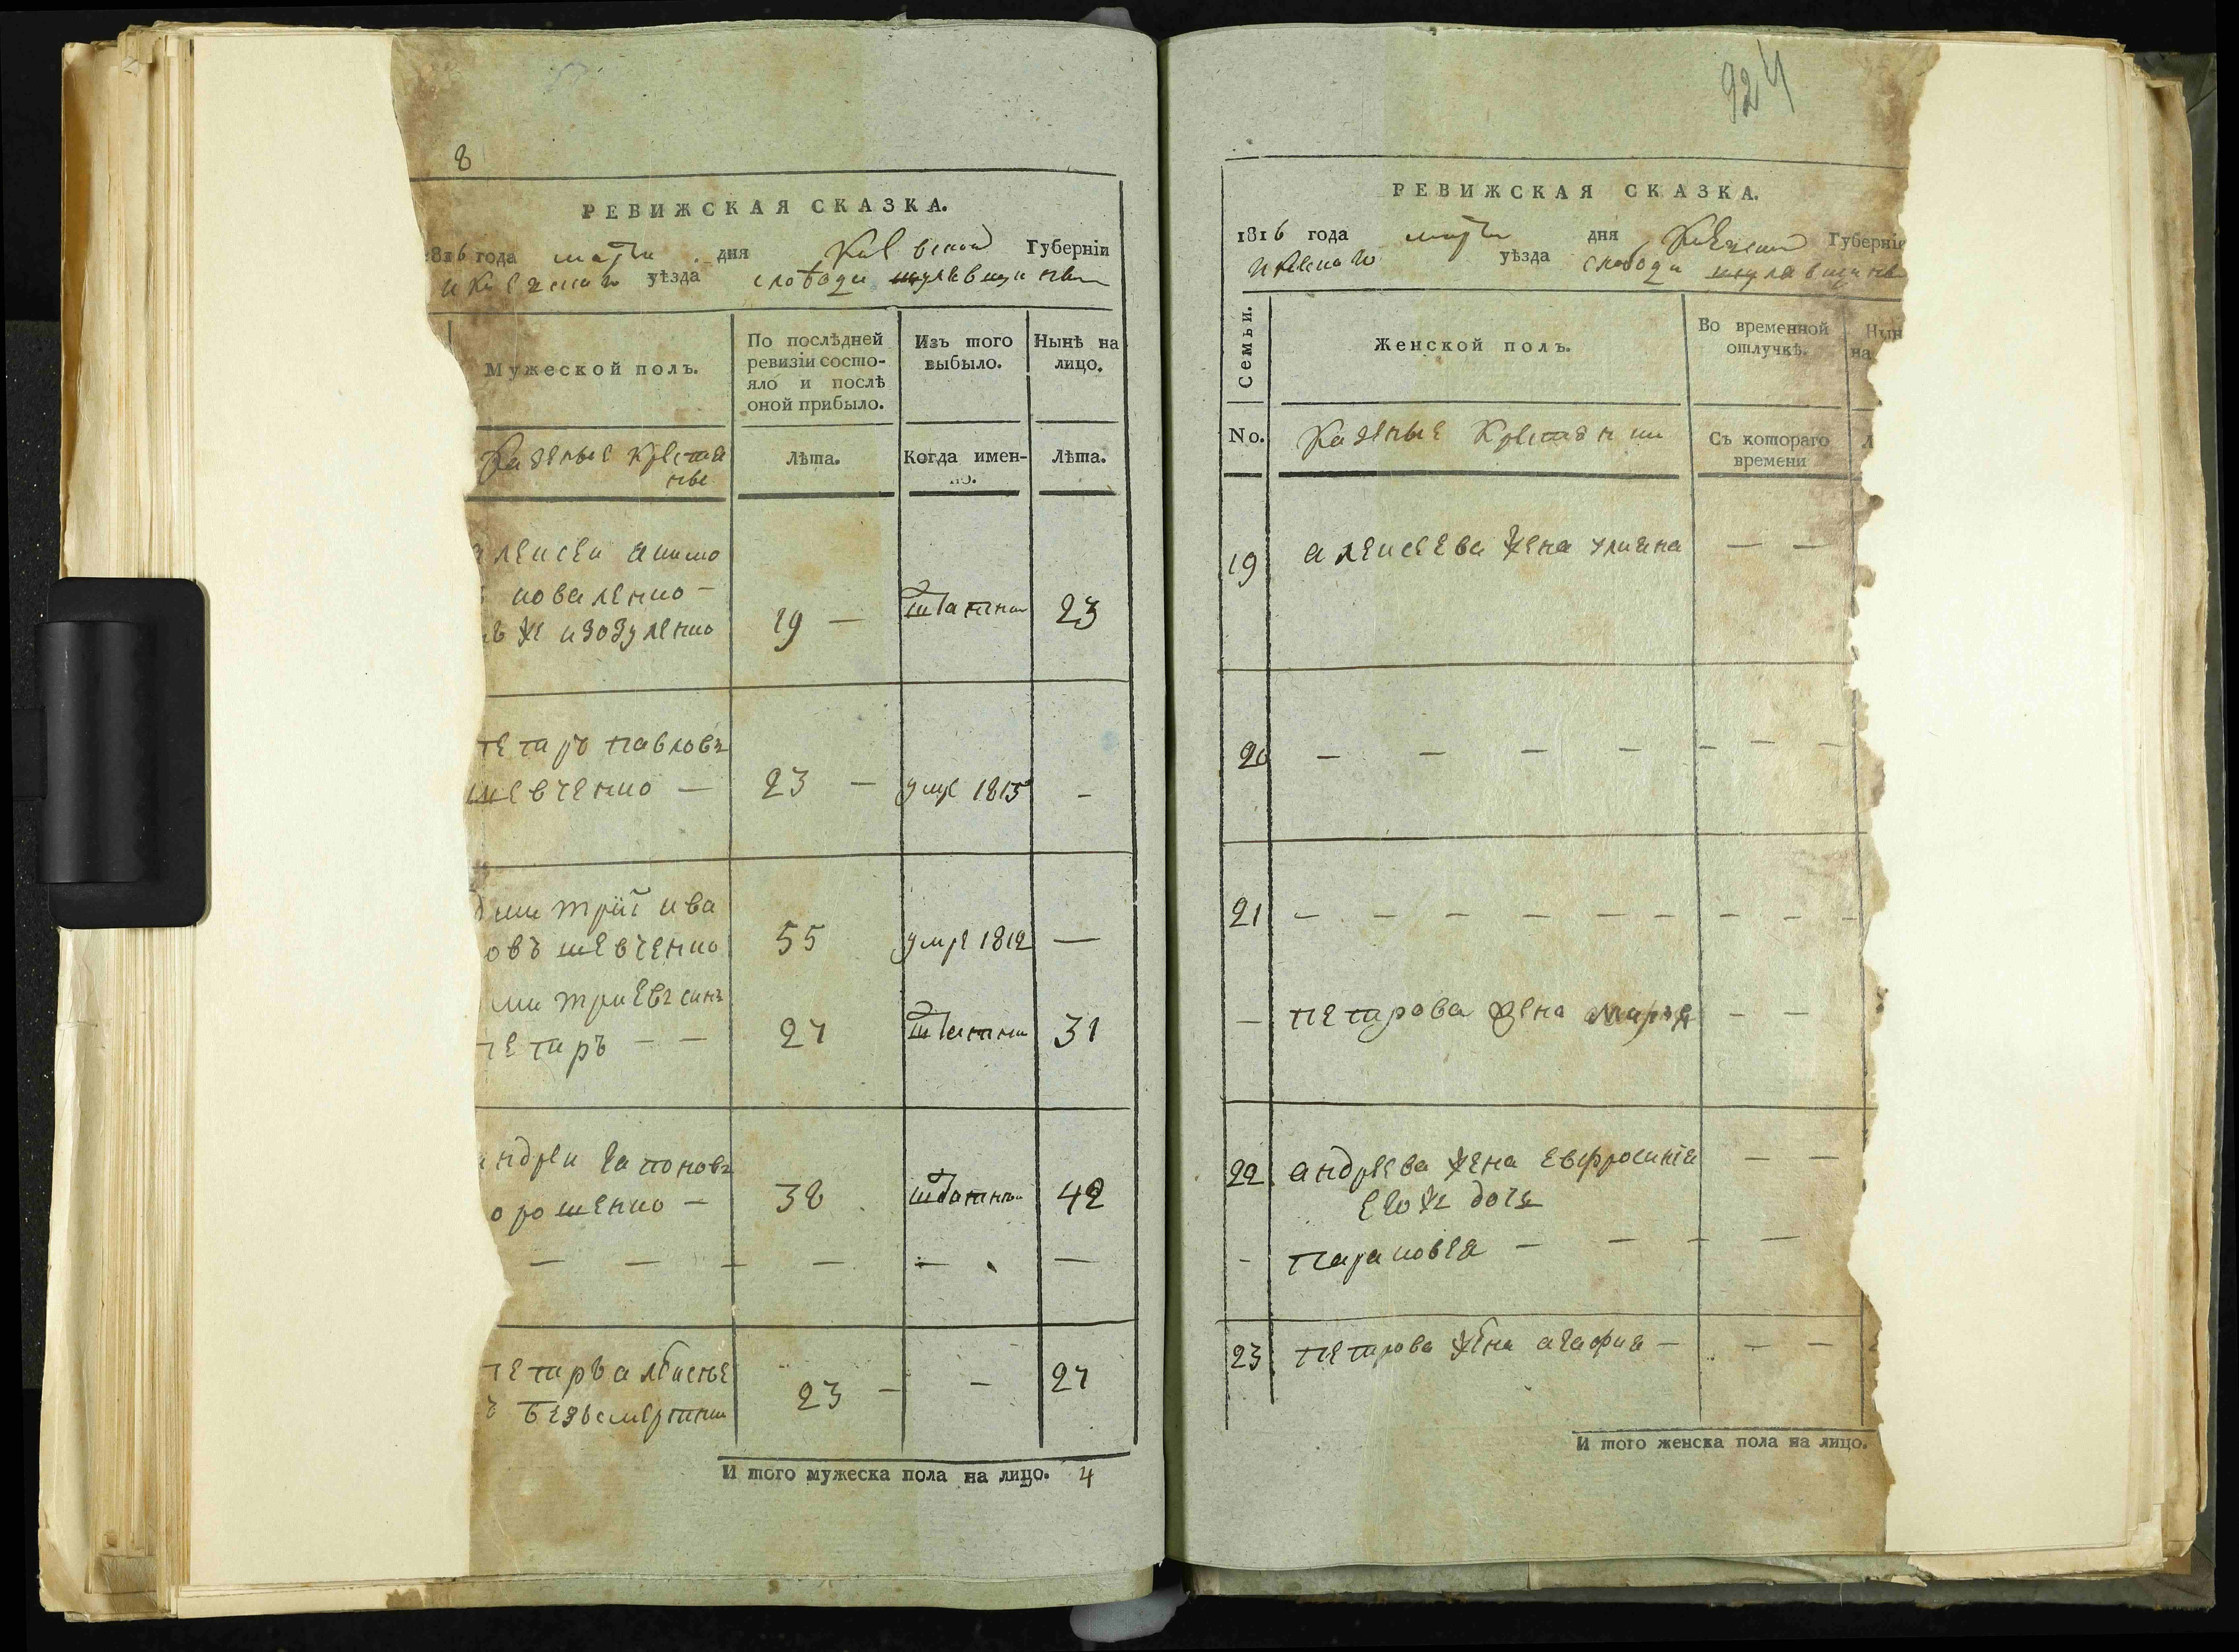 8
РЕВИЖСКАЯ СКАЗКА.
1816 года марта дня Киевской Губерніи
и Киевскаго уѣзда слободи шулявщини
Мужеской полъ.
По послѣдней ревизіи состо-
яло и послѣ
оной прибыло.
Изъ того
выбыло.
Нынѣ на
лицо.
Казенные крестя
не
Лѣта.
Когда имен-
но.
Лѣта.
алексеи акимо
коваленко –
ъ же изозуленко
19 –
23
петръ павловъ
шевченко –
23 –
умре 1815
–
дмитрій ива
овъ шевченко
55
умре 1812
—
митриевъ синъ
петръ – –
27
31
андреи гапоновъ
орошенко –
38
42
— — — — — —
петръ алексѣе
ъ безъсмертни
23 –
–
27
И того мужеска пола на лицо. 4
924
РЕВИЖСКАЯ СКАЗКА.
1816 года марта дня Киевской Губерніи
уѣзда слободи шулявщини
Семьи.
Женской полъ.
Во временной
отлучкѣ.
Нын
на
No.
Казенные крестянки
Съ котораго
времени
Л
19 алексеева жена улияна — —
20 – – – – – – –
21 – – – – – – – – –
– петрова жена марья – –
22 андреева жена евфросинія — —
его же дочь
- парасковея – – – –
23 петрова жена агафия – – –
И того женска пола на лицо.